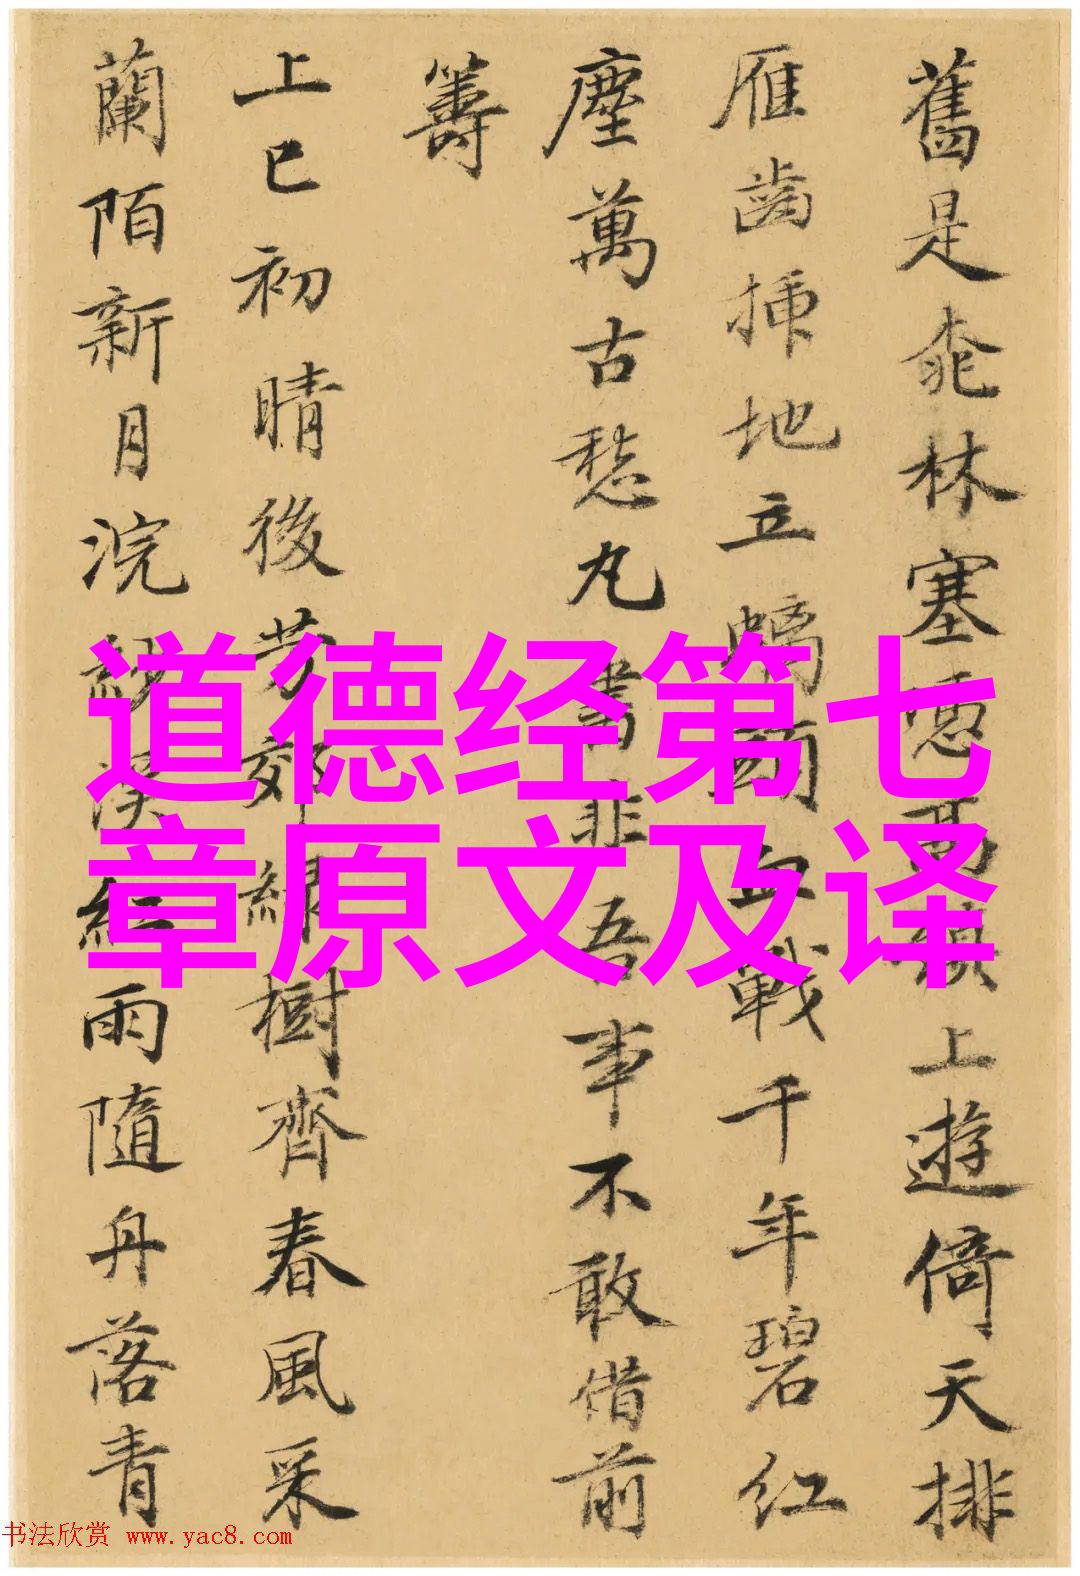 舊是桃林塞高上遊倚天排
雁齒插地立螭頭血戰千年碧紅
塵萬古愁丸書非吾事不敢借前
籌
上巳初晴後芳郊綠樹齊春風采
蘭陌新月浣紗溪紅雨隨舟落青
道德经第七
章原文及译
书法欣赏 www.yac8.com